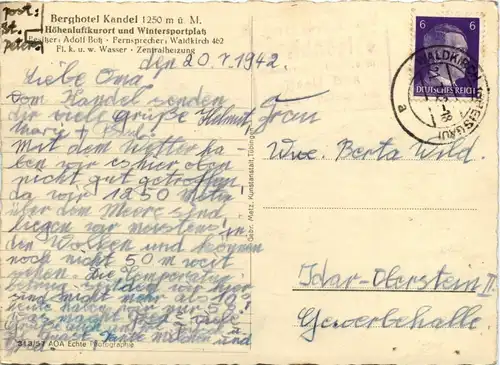 post:
St.
Peter.
Berghotel Kandel 1250 m ü. M.
Höhenluftkurort und Wintersportplatz
Besitzer: Adolf Bolz - Fernsprecher: Waldkirch 462
Fl. k. u. w. Wasser - Zentralheizung
den 20.V.1942.
Liebe Oma!
Vom Kandel senden
dir viele Grüße Helmut,
Mit dem Wetter ha-
ben wir es hier oben
nicht gut getroffen,
da wir 1250 Meter
über dem Meere sind,
liegen wir meistens in
den Wolken und können
noch nicht 50 m weit
sehen. Die Temperatur
sind nicht mehr als 10°
heute haben wir nur 5°
313/57 AOA Echte Photographie
Gebr. Metz, Kunstanstalt, Tübingen
6 6
DEUTSCHES REICH
WALDKIRCH (BREISGAU)
a
Frau
Wwe. Berta Wild.
Idar-Oberstein II
Gewerbehalle.